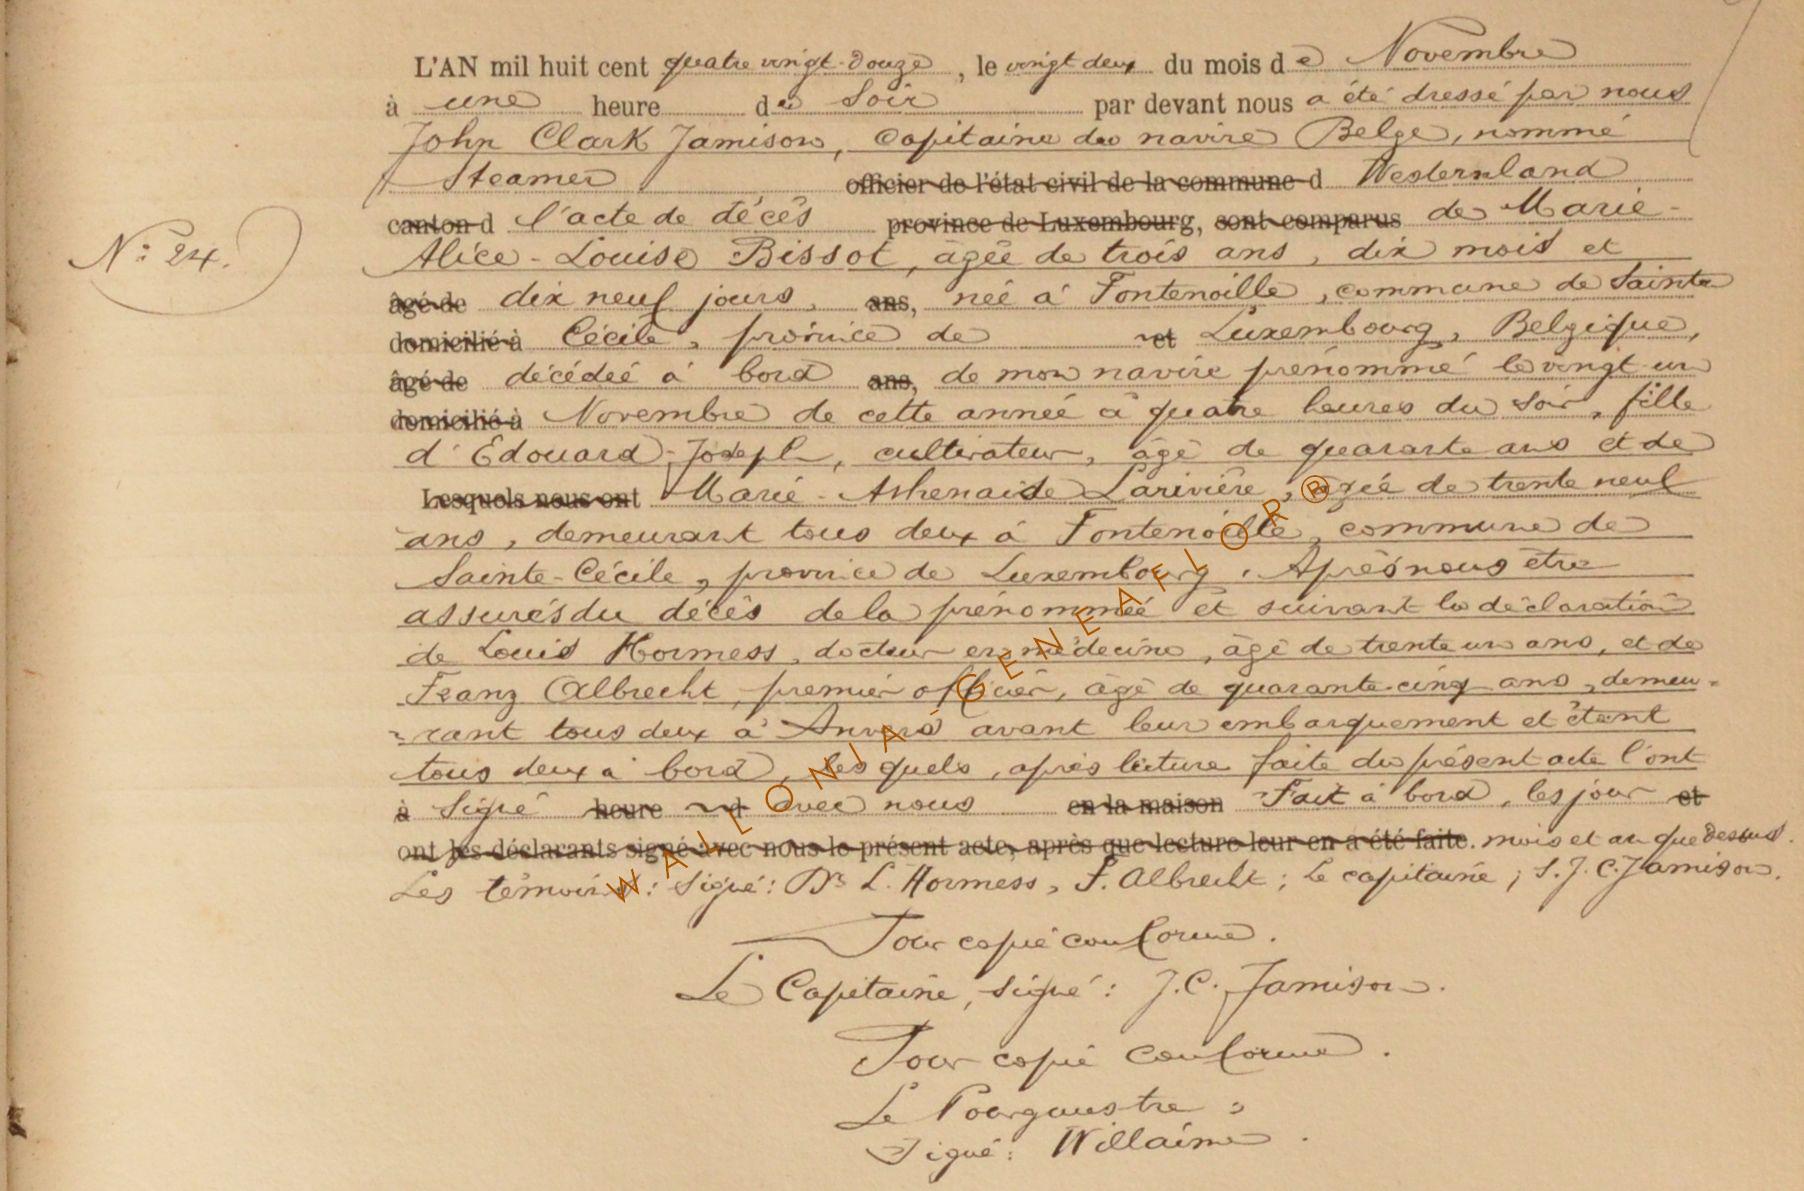 L'AN mil huit cent quatre vingt-douze, le vingt deux du mois de Novembre
à une heure du Soir par devant nous a été dressé par nous
John Clark Jamison, Capitaine du navire Belge, nommé
Steamer officier de l'état civil de la commune d Westernland
canton d l'acte de décès province de Luxembourg, sont comparus de Marie-
N° 24.
Alice-Louise Bissot, âgée de trois ans, dix mois et
âgé de dix neuf jours, ans, née à Fontenoille, commune de Sainte
domicilié à Cécile, province de et Luxembourg, Belgique,
âgé de décédée à bord ans, de mon navire prénommé le vingt-un
domicilié à Novembre de cette année à quatre heures du Soir, fille
d'Edouard-Joseph, cultivateur, âgé de quarante ans et de
Lesquels nous ont Marie-Athenaïde Larivière, âgée de trente neuf
ans, demeurant tous deux à Fontenoille, commune de
Sainte-Cécile, province de Luxembourg. Après nous être
assurés du décès de la prénommée et suivant la déclaration
de Louis Hormess, docteur en médecine, âgé de trente un ans, et de
Franz Albrecht, premier officier, âgé de quarante-cinq ans, demeu-
rant tous deux à Anvers avant leur embarquement et étant
tous deux à bord, lesquels, après lecture faite du présent acte l'ont
à Signé heure d avec nous en la maison Fait à bord, les jour et
ont les déclarants signé avec nous le présent acte, après que lecture leur en a été faite. mois et an que dessus.
Les témoins: Signé: Dr L. Hormess, F. Albrecht; Le capitaine; S. J. C. Jamison.
Pour copie conforme.
Le Capitaine, signé: J. C. Jamison.
Pour copie conforme.
Le Bourgmestre:
Signé: Willaime.
WALLONIA GENEAFLOR®